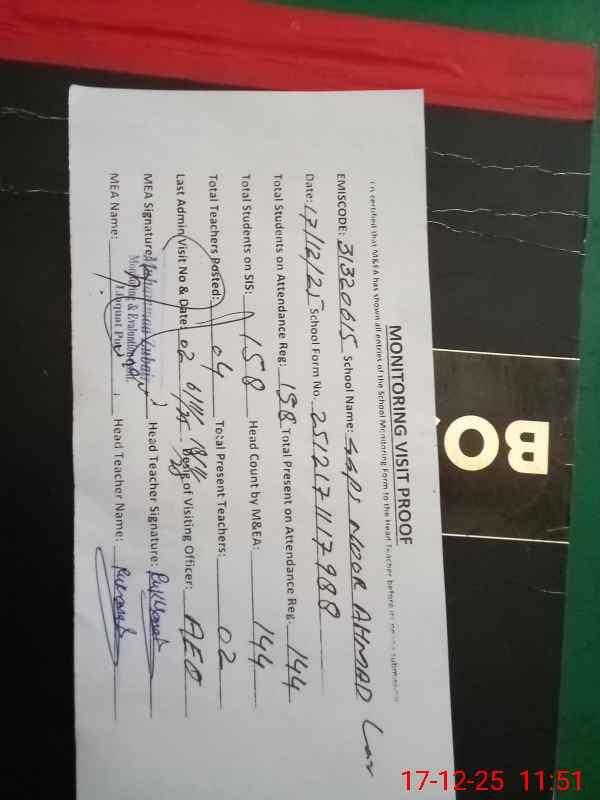 MONITORING VISIT PROOF
It is certified that M&EA has shown all entries of the School Monitoring Form to the Head Teacher before its online submission
EMISCODE: 31320615 School Name: GGPS NOOR AHMAD Lar
Date: 17/12/25 School Form No. 2512171117988
Total Students on Attendance Reg: 158 Total Present on Attendance Reg. 144
Total Students on SIS: 158 Head Count by M&EA: 144
Total Teachers Posted: 04 Total Present Teachers: 02
Last Admin Visit No & Date: 02 Desig of Visiting Officer: AEO
MEA Signature: Head Teacher Signature: Rukhsana
MEA Name: Head Teacher Name: Rukhsana
Muhammad Zubair
Monitoring & Evaluation
Liaquat Pur
BO
17-12-25 11:51